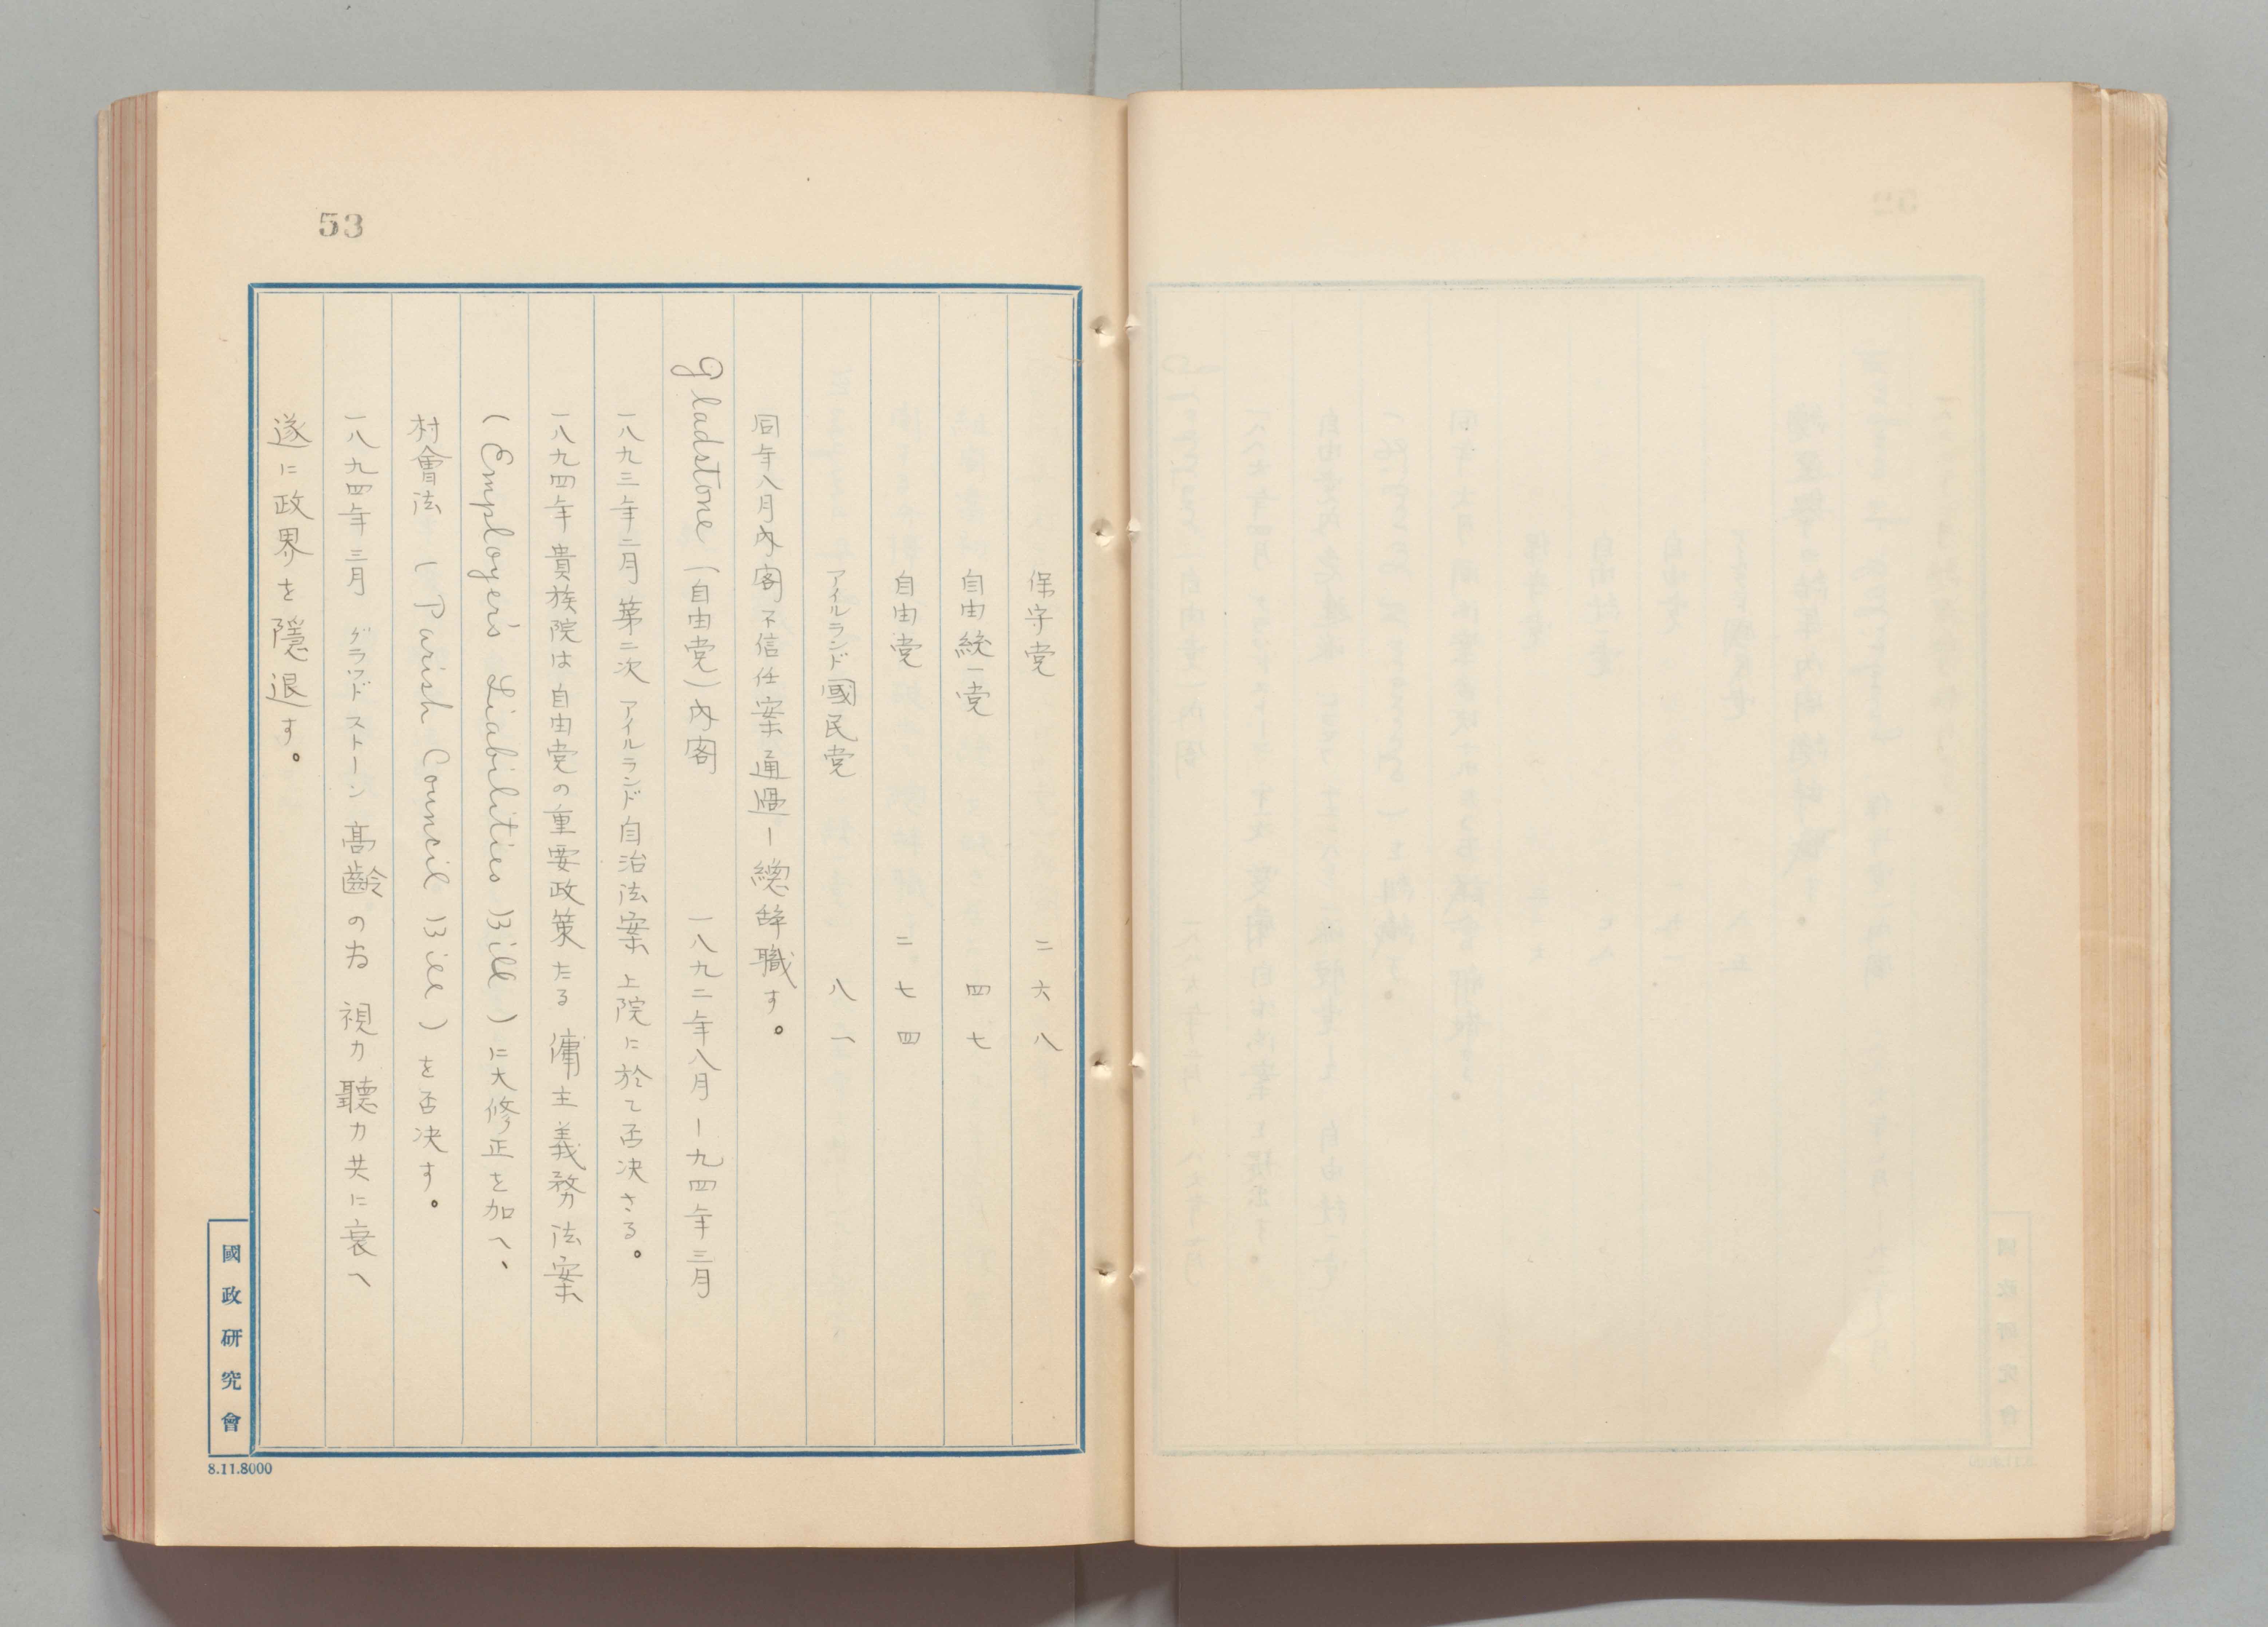 53
保守党 二六八
自由統一党 四七
自由党 二七四
アイルランド國民党 八一
同年八月内閣不信任案通過―總辞職す。
Gladstone(自由党)内閣 一八九二年八月―九四年三月
一八九三年二月第二次アイルランド自治法案上院に於て否决さる。
一八九四年貴族院は自由党の重要政策たる傭主義務法案
(Employer's Liabilities Bill)に大修正を加へ、
村會法(Parish Council Bill)を否决す。
一八九四年三月 グラッドストーン高齢の為視力聽力共に衰へ
遂に政界を隱退す。
國政研究會
8.11.8000